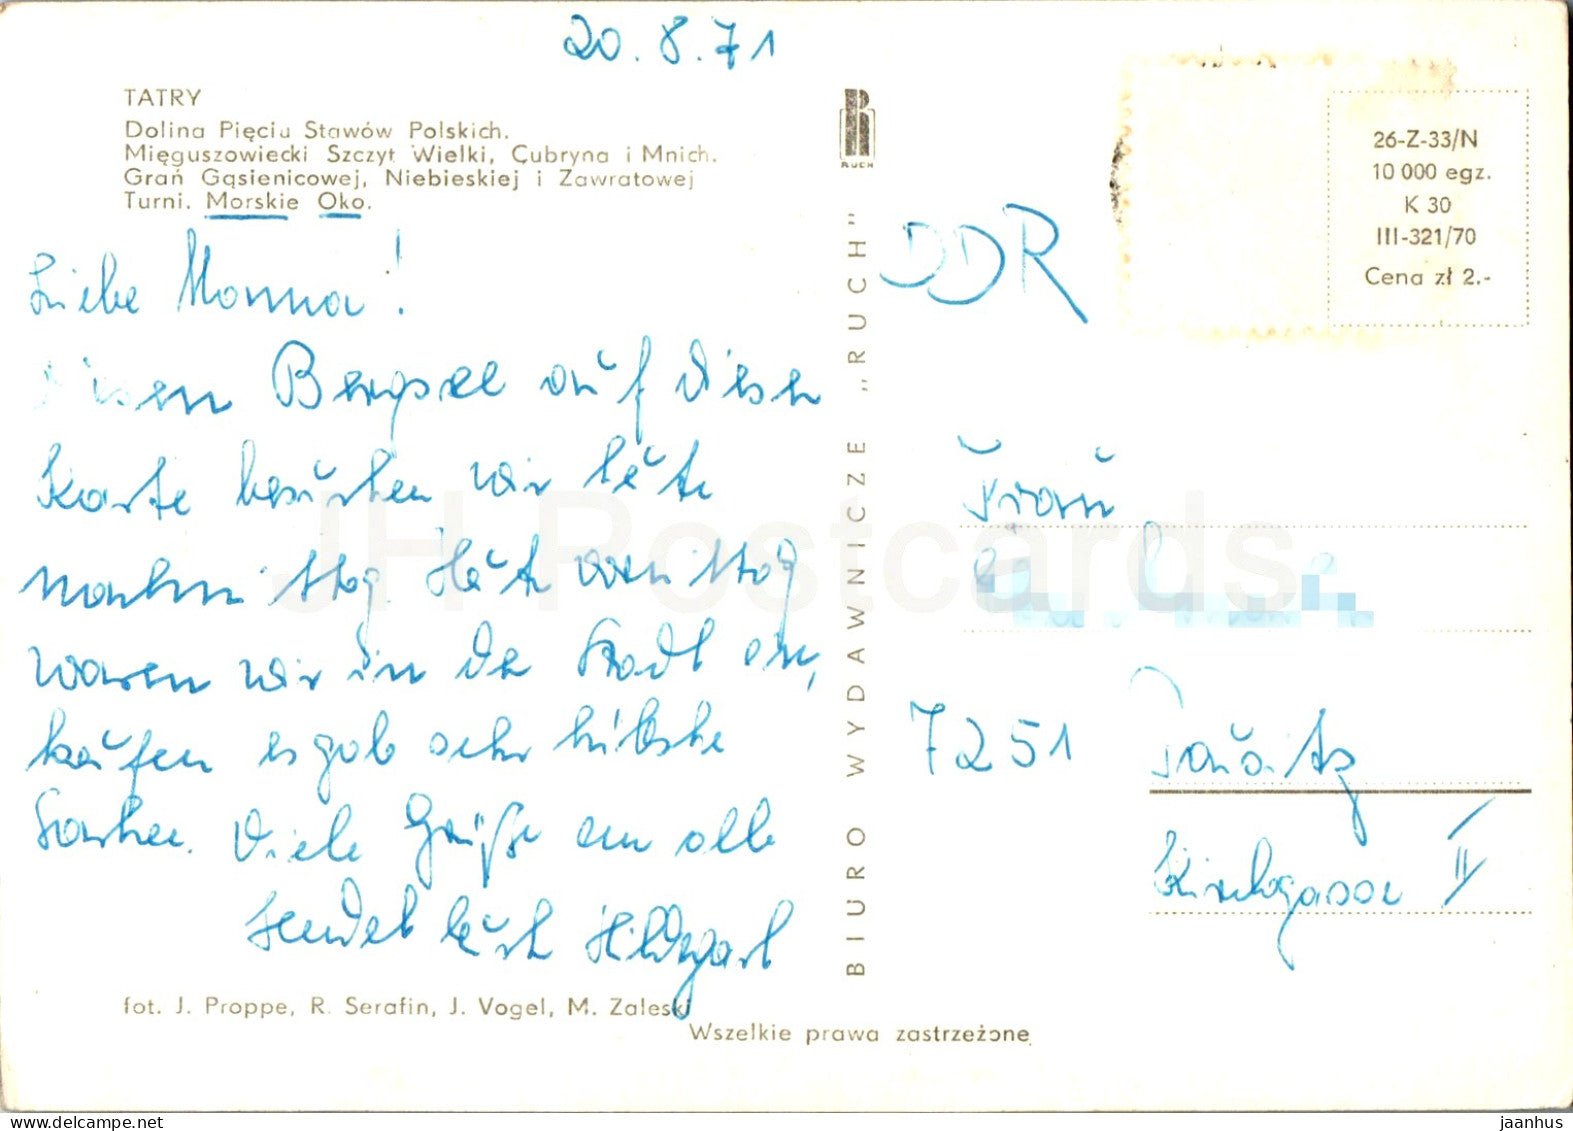 20.8.71
TATRY
Dolina Pięciu Stawów Polskich.
Mięguszowiecki Szczyt Wielki, Cubryna i Mnich.
Grań Gąsienicowej, Niebieskiej i Zawratowej
Turni. Morskie Oko.
Liebe Mamma!
Diesen Bergsee auf dieser
Karte besuchen wir heute
nachmittag. Heute vormittag
waren wir in der Stadt ein,
kaufen es gab sehr hübsche
Sachen. Viele Grüße an alle
Hildegard
fot. J. Proppe, R. Serafin, J. Vogel, M. Zaleski
Wszelkie prawa zastrzeżone
BIURO WYDAWNICZE „RUCH"
RUCH
26-Z-33/N
10 000 egz.
K 30
III-321/70
Cena zł 2.-
DDR
Frau
7251
Kirchgasse II
JH Postcards
www.delcampe.net
jaanhus